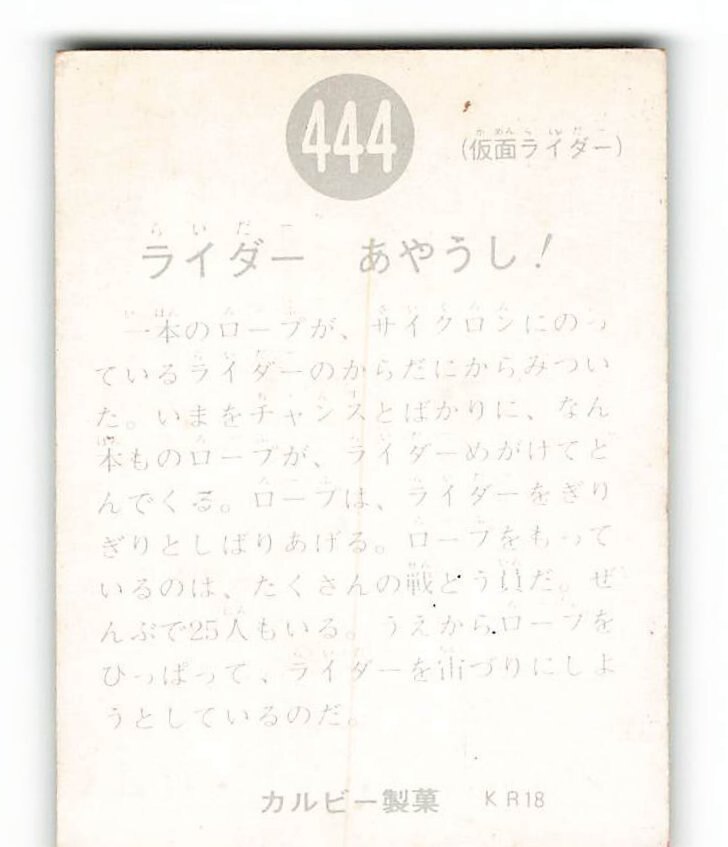 444
(仮面ライダー)
ライダー あやうし!
一本のロープが、サイクロンにのっ
ているライダーのからだにからみつい
た。いまをチャンスとばかりに、なん
本ものロープが、ライダーめがけてと
んでくる。ロープは、ライダーをぎり
ぎりとしばりあげる。ロープをもって
いるのは、たくさんの戦とう員だ。ぜ
んぶで25人もいる。うえからロープを
ひっぱって、ライダーを宙づりにしよ
うとしているのだ。
カルビー製菓 KR18